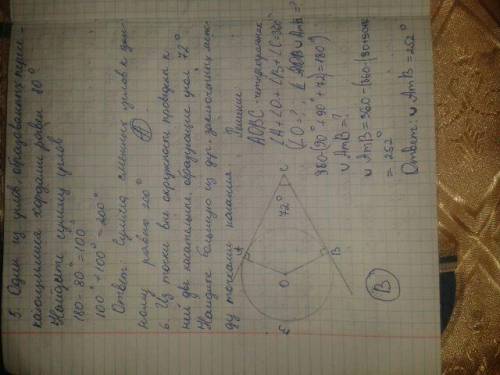 5. Один из углов, образованных пересе-
кающимися хордами равен 80°
Найдите сумму углов
180 - 80 = 100°
100° + 100° = 200°
Ответ: Сумма смежных углов к дан-
ному равна 200° А
6. Из точки вне окружности проведен к
ней две касательные, образующие угол 72°
Найдите большую из дуг, заключенных меж-
ду точками касания
Решение
AOBC - четырехугольник
∠A + ∠O + ∠B + ∠C = 360°
(∠O = ?, ∠AOB ∪AmB = ?
360 - (90° + 90° + 72) =
∪AmB = ?
∪AmB = 360 -
= 252°
Ответ: ∪AmB = 252°
A
C
72°
B
O
B